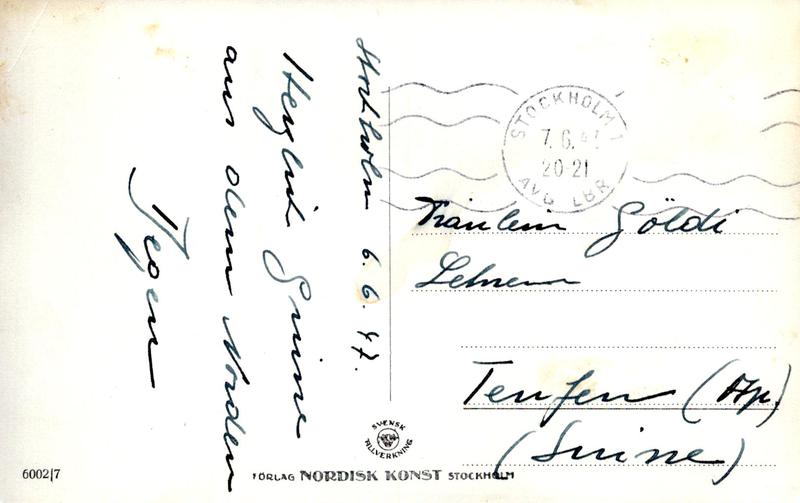 Stockholm 6.6.47.
Herzlich Grüsse
aus dem Norden
STOCKHOLM 1
7.6.47
20-21
AVG LBR
Fräulein Göldi
Lehrerin
Teufen (App.
(Suisse)
SVENSK
TILLVERKNING
6002/7
FÖRLAG NORDISK KONST STOCKHOLM